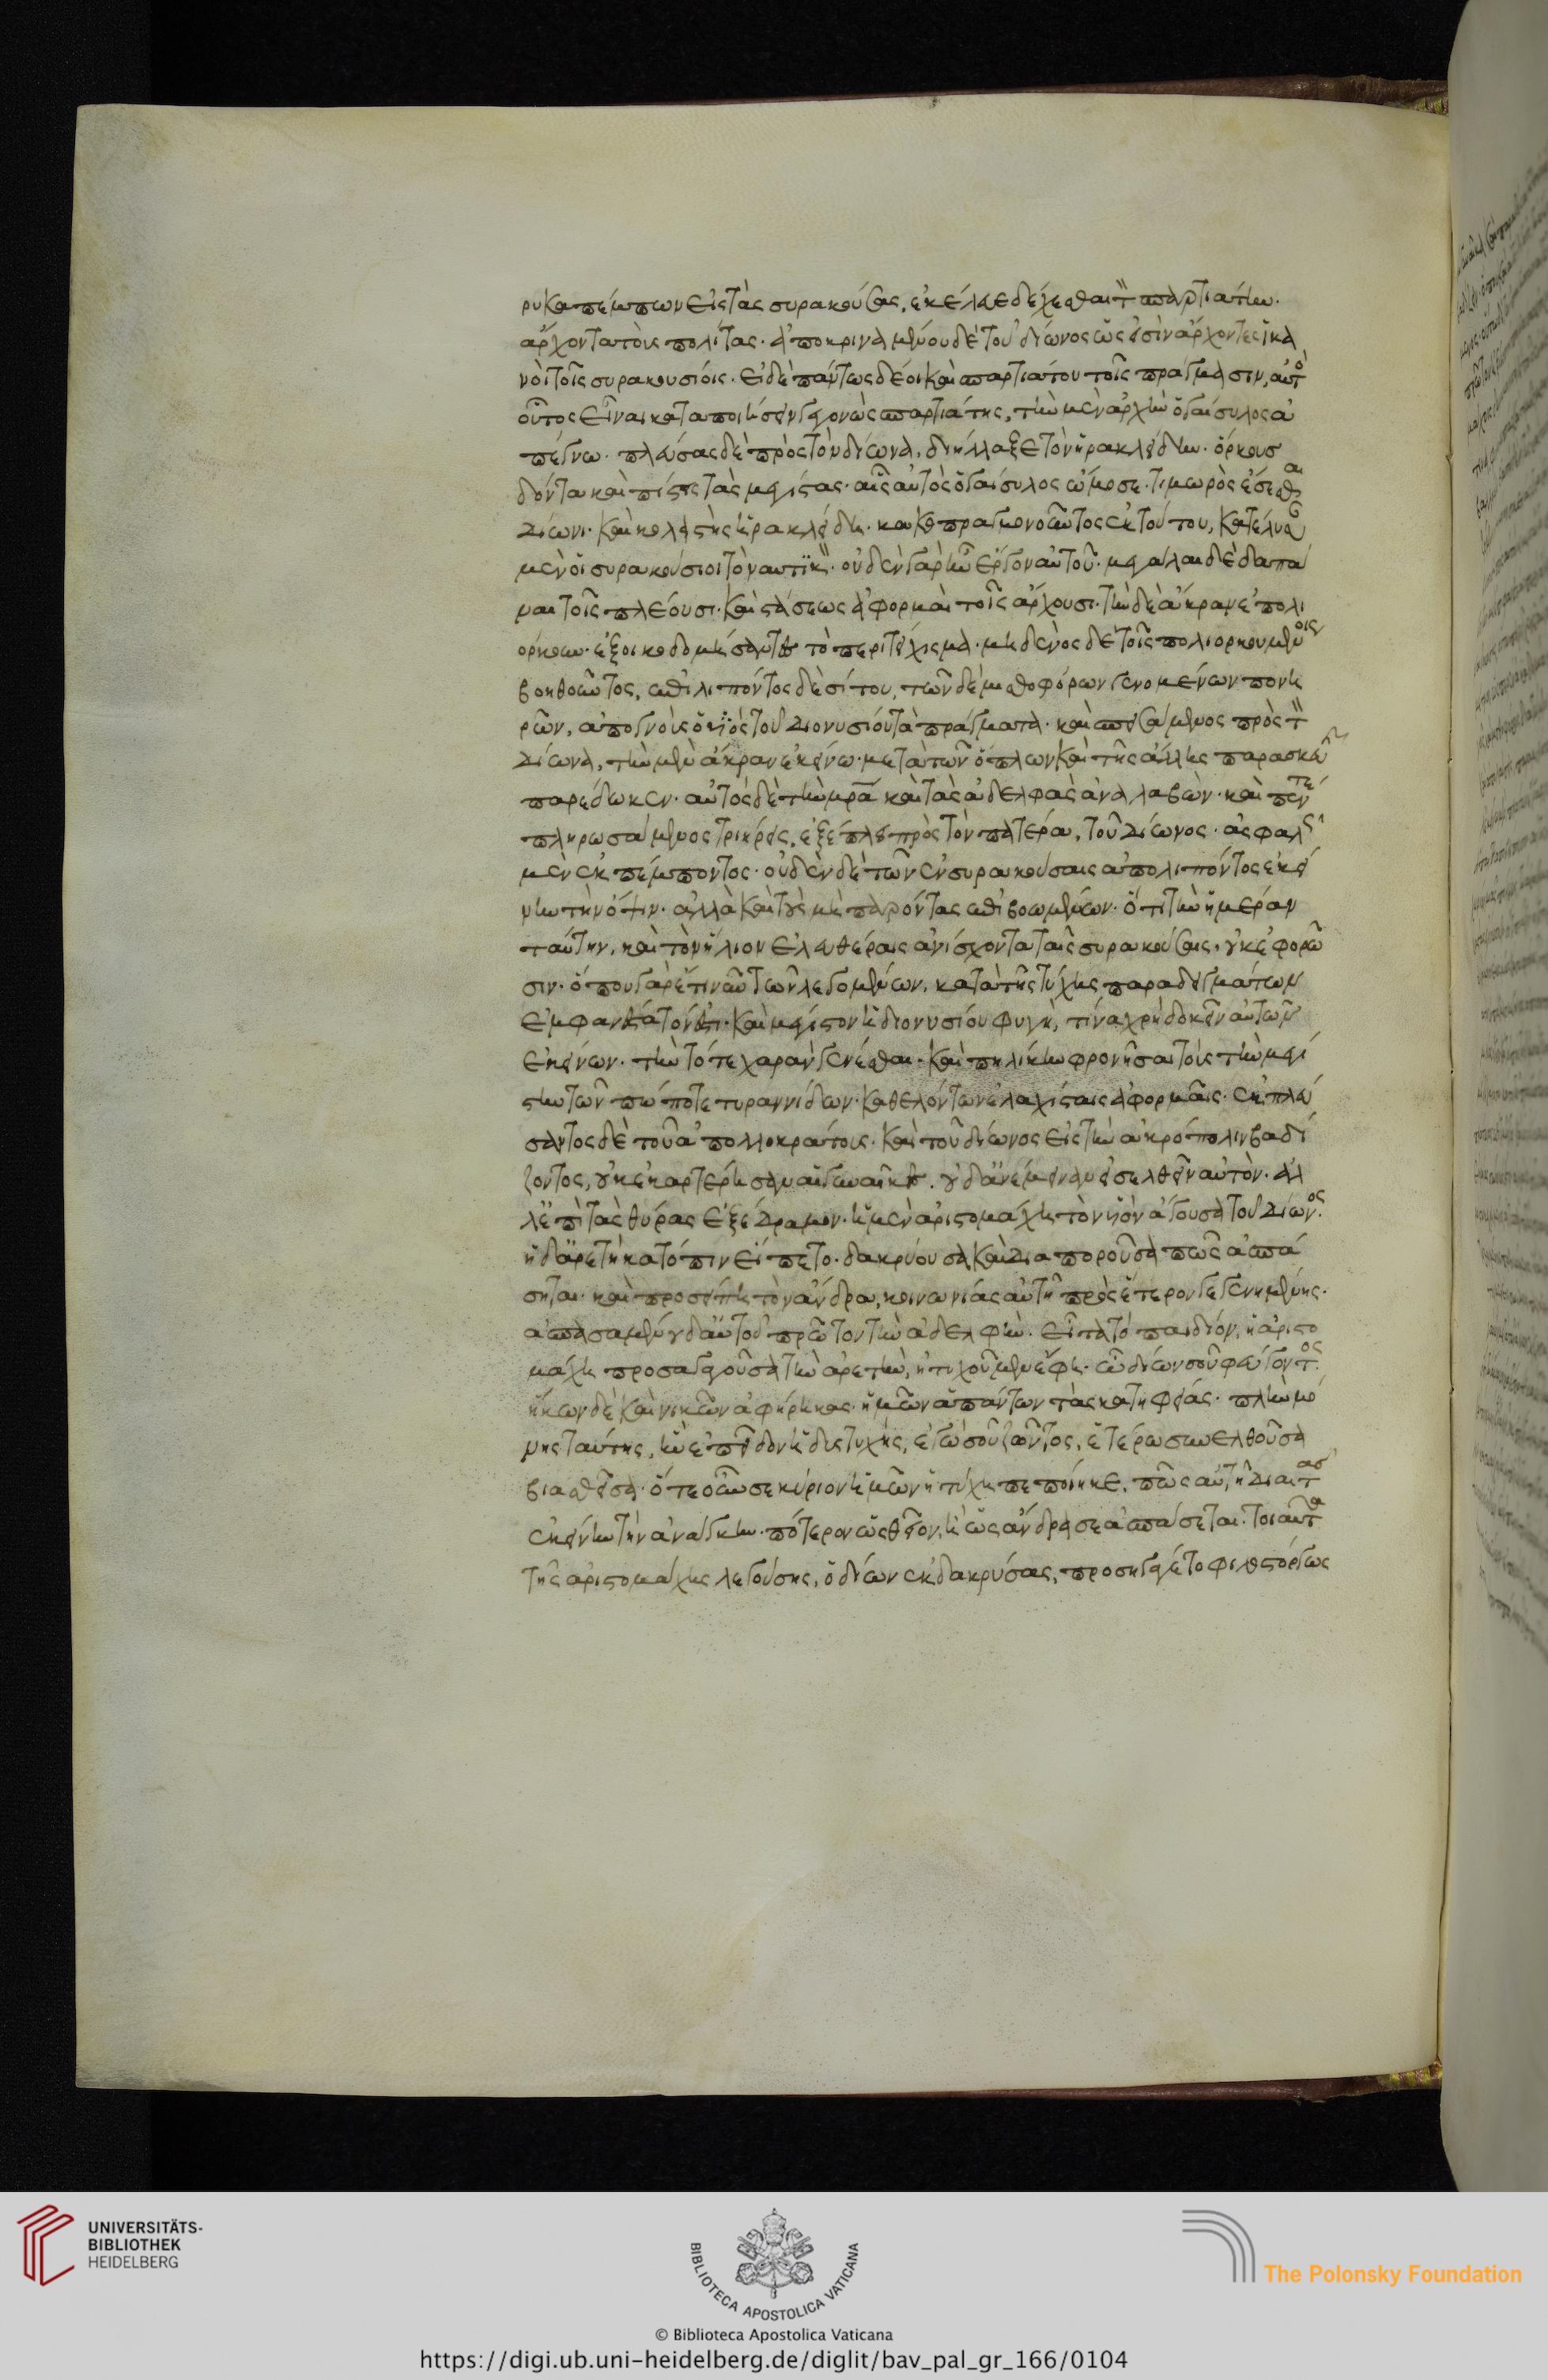 ρυκα πέμπων εἰς τὰς συρακούσας, ἐκέλευε δέχεσθαι τὸν σπαρτιάτην.
ἄρχοντα τοὺς πολίτας· ἀποκριναμένου δὲ τοῦ δίωνος ὡς εἰσὶν ἄρχοντες ἱκα
νοὶ τοῖς συρακουσίοις· εἰ δὲ πάντως δέοι καὶ σπαρτιάτου τοῖς πράγμασιν, αὐτὸς
οὗτος εἶναι κατὰ ποίησιν γεγονὼς σπαρτιάτης, τὴν μὲν ἀρχὴν ὁ γαίσυλος ἀ
πέγνω· πλεύσας δὲ πρὸς τὸν δίωνα, διήλλαξε τὸν ἡρακλείδην· ὅρκους
δόντα καὶ πίστεις τὰς μεγίστας· αἷς αὐτὸς ὁ γαίσυλος ὤμοσε· τιμωρὸς ἔσεσθαι
δίωνι· καὶ κολαστὴς ἡρακλείδη κακοπραγμονοῦντος· ἐκ τούτου, κατέλυσαν
μὲν οἱ συρακούσιοι τὸ ναυτικόν· οὐδὲν γὰρ ἦν ἔργον αὐτοῦ· μεγάλαι δὲ δαπά
ναι τοῖς πλέουσι· καὶ στάσεως ἀφορμαὶ τοῖς ἄρχουσι· τὴν δὲ ἄκραν ἐπολι
όρκουν· ἐξοικοδομήσαντες τὸ περιτείχισμα· μηδενὸς δὲ τοῖς πολιορκουμένοις
βοηθοῦντος, ἐπιλιπόντος δὲ σίτου, τῶν δὲ μισθοφόρων γενομένων πονη
ρῶν, ἀπογνοὺς ὁ υἱὸς τοῦ διονυσίου τὰ πράγματα· καὶ σπεισάμενος πρὸς τὸν
δίωνα, τὴν μὲν ἄκραν ἐκείνῳ· μετὰ τῶν ὅπλων καὶ τῆς ἄλλης παρασκευῆς
παρέδωκεν· αὐτὸς δὲ τὴν μητέρα καὶ τὰς ἀδελφὰς ἀναλαβὼν· καὶ πέντε
πληρωσάμενος τριήρεις, ἐξέπλει πρὸς τὸν πατέρα, τοῦ δίωνος· ἀσφαλῶς
μὲν ἐκπέμποντος· οὐδὲν δὲ τῶν ἐν συρακούσαις ἀπολιπόντος ἐκεί
νην τὴν ὄψιν· ἀλλὰ καὶ τοὺς μὴ παρόντας ἐπιβοωμένων· ὅτι τὴν ἡμέραν
ταύτην, καὶ τὸν ἥλιον ἐλευθέραις ἀνίσχοντα ταῖς συρακούσαις, οὐκ ἐφορῶ
σιν· ὅπου γὰρ ἔτι νῦν τῶν λεγομένων, κατὰ τῆς τύχης παραδειγμάτων
ἐμφανέστατόν ἐστι· καὶ μέγιστον ἡ διονυσίου φυγή, τίνα χρὴ δοκεῖν αὐτῶν
ἐκείνων· τὴν τότε χαρὰν γενέσθαι· καὶ πηλίκην φρονῆσαι τοὺς τὴν μεγί
στην τῶν πώποτε τυραννίδων· καθελόντων ἐλαχίσταις ἀφορμαῖς· ἐκπλεύ
σαντος δὲ τοῦ ἀπολλοκράτους· καὶ τοῦ δίωνος εἰς τὴν ἀκρόπολιν βαδί
ζοντος, οὐκ ἐκαρτέρησαν αἱ γυναῖκες, οὐδ' ἀνέμειναν εἰσελθεῖν αὐτόν· ἀλ
λ' ἐπὶ τὰς θύρας ἐξέδραμον· ἡ μὲν ἀριστομάχη τὸν υἱὸν ἄγουσα τοῦ δίωνος·
ἡ δ' ἀρετὴ κατόπιν εἵπετο· δακρύουσα καὶ διαποροῦσα πῶς ἀσπά
σηται· καὶ προσείπῃ τὸν ἄνδρα, κοινωνίας αὐτῇ πρὸς ἕτερον γεγενημένης·
ἀσπασαμένου δ' αὐτοῦ πρῶτον τὴν ἀδελφὴν· εἶτα τὸ παιδίον, ἡ ἀριστο
μάχη προσαγαγοῦσα τὴν ἀρετὴν, ἠτυχοῦμεν ἔφη· ὦ δίων σοῦ φεύγοντος·
ἥκων δὲ καὶ νικῶν ἀφῄρηκας· ἡμῶν ἁπάντων τὰς κατηφείας· πλὴν μό
νης ταύτης, ἣν ἐπεῖδον ἡ δυστυχὴς, ἐγὼ σοῦ ζῶντος, ἑτέρῳ συνελθοῦσα
βιασθεῖσα· ὅτε οὖν σε κύριον ἡμῶν ἡ τύχη πεποίηκε, πῶς αὐτῇ διαιτᾷς
ἐκείνην τὴν ἀνάγκην· πότερον ὡς θεῖον, ἢ ὡς ἄνδρα σε ἀσπάσεται· τοιαῦτα
τῆς ἀριστομάχης λεγούσης, ὁ δίων ἐκδακρύσας, προσηγάγετο φιλοστόργως
UNIVERSITÄTS-
BIBLIOTHEK
HEIDELBERG
BIBLIOTECA APOSTOLICA VATICANA
The Polonsky Foundation
© Biblioteca Apostolica Vaticana
https://digi.ub.uni-heidelberg.de/diglit/bav_pal_gr_166/0104